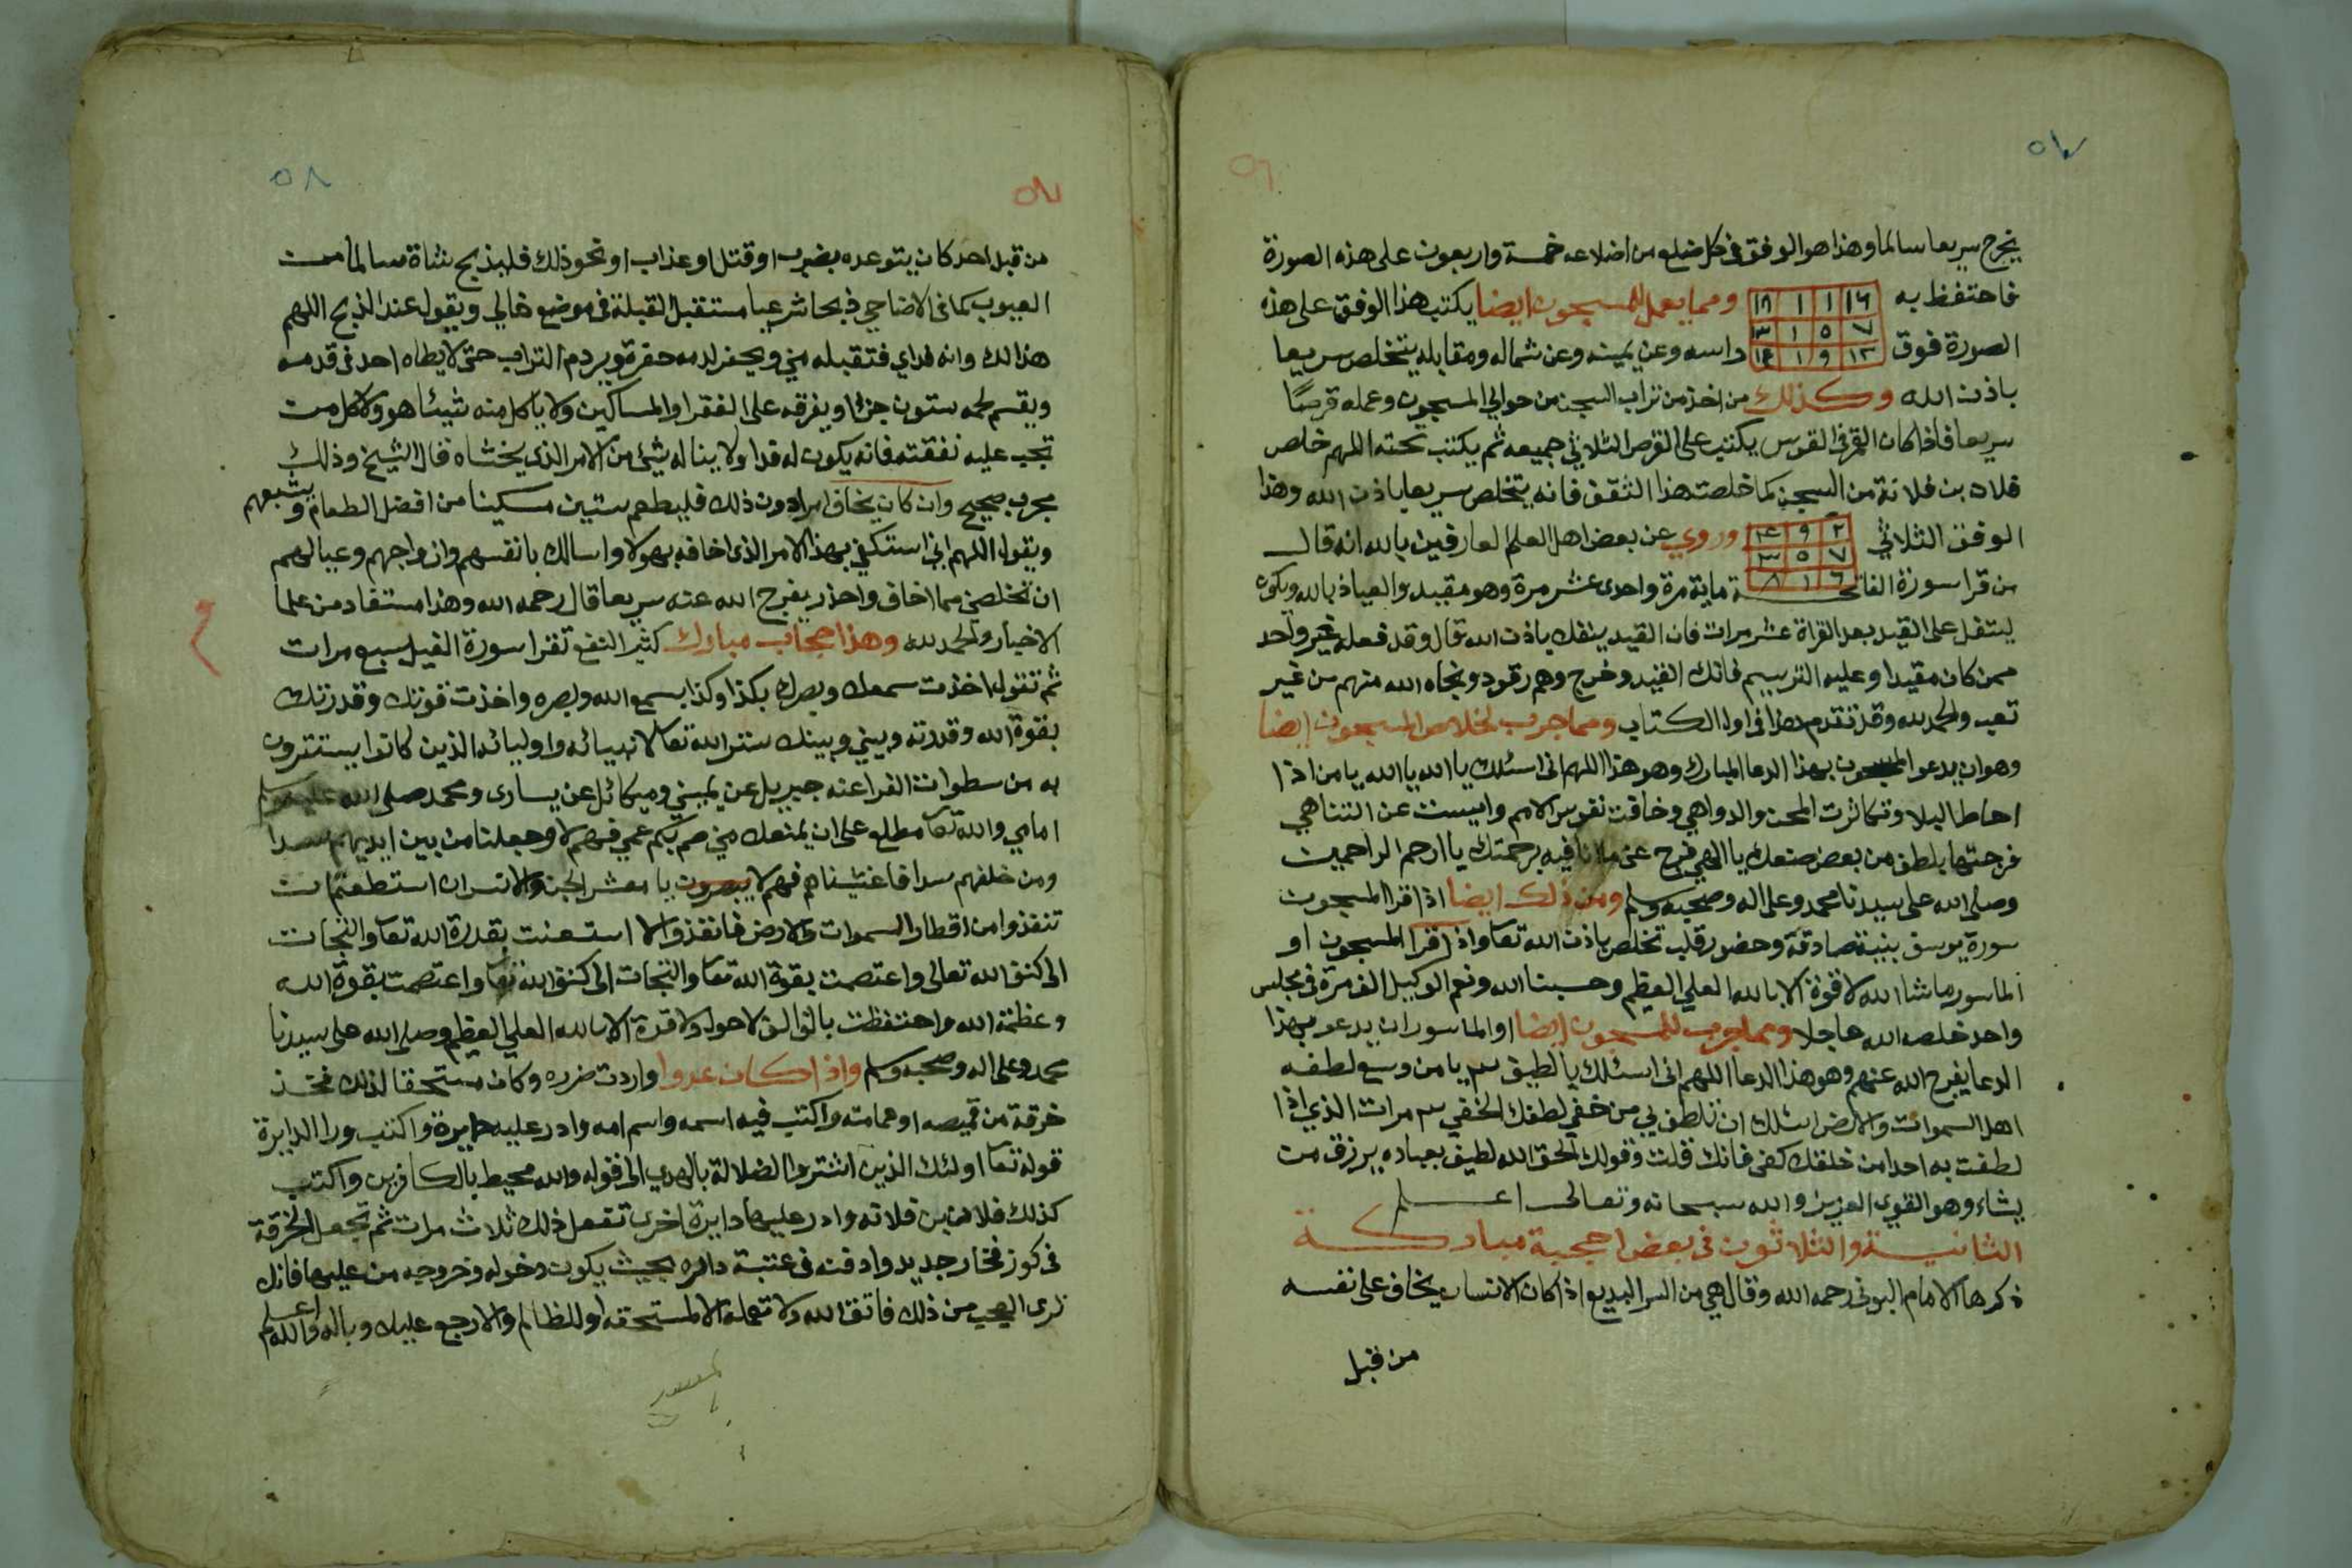 ٥٧
٥٦
يخرج سريعا سالما وهذا هو الوفق في كل ضلع من اضلاعه خمسة واربعون على هذه الصورة
فاحتفظ به ومما يعمل للمسجون ايضا يكتب هذا الوفق على هذه
١٦ ١ ١ ١٨
٧ ٥ ١ ٣
١٣ ٩ ١ ١٤
الصورة فوق راسه وعن يمينه وعن شماله ومقابله يتخلص سريعا
باذن الله وكذلك من اخذ من تراب السجن من حوالي المسجون وعمله قرصًا
سريعا فاذا كان القمر في القوس يكتب على القرص الثلاثي جميعه ثم يكتب تحته اللهم خلص
فلان بن فلانة من السجن كما خلصت هذا الثقف فانه يتخلص سريعا باذن الله وهذا
الوفق الثلاثي وروي عن بعض اهل العلم العارفين بالله انه قال
٢ ٩ ٤
٧ ٥ ٣
٦ ١ ٨
من قرا سورة الفاتحة ماية مرة واحدى عشر مرة وهو مقيد والعياذ بالله ويكون
يتفل على القيد بعد القراة عشر مرات فان القيد ينفك باذن الله قال وقد فعله غير واحد
ممن كان مقيدا وعليه الترسيم فانك القيد وخرج وهم رقود ونجاه الله منهم من غير
تعب والحمد لله وقد تقدم هذا في اول الكتاب ومما جرب لخلاص المسجون ايضا
وهو ان يدعو المسجون بهذا الدعا المبارك وهو هذا اللهم اني اسئلك يا الله يا الله يا من اذا
احاط البلا وتكاثرت المحن والدواهي وخافت نفوس الامم وايست عن التناهي
فرجتها بلطف من بعض صنعك يا الهي فرج عني ما انا فيه برحمتك يا ارحم الراحمين
وصلى الله على سيدنا محمد وعلى اله وصحبه وسلم ومن ذلك ايضا اذا قرا المسجون
سورة يوسف بنية صادقة وحضور قلب تخلص باذن الله تعا واذا قرا المسجون او
الماسور ما شا الله لا قوة الا بالله العلي العظيم وحسبنا الله ونعم الوكيل الف مرة في مجلس
واحد خلصه الله عاجلا ومما جرب للمسجون ايضا او الماسور ان يدعو بهذا
الدعا يفرج الله عنهم وهو هذا الدعا اللهم اني اسئلك يا لطيف ٣ يا من وسع لطفه
اهل السموات والارض اسئلك ان تلطف بي من خفي لطفك الخفي ٣ مرات الذي اذا
لطفت به احدا من خلقك كفى فانك قلت وقولك الحق الله لطيف بعباده يرزق من
يشاء وهو القوي العزيز والله سبحانه وتعالى اعلم
الثانية والثلاثون في بعض احجبة مباركة
ذكرها الامام البوني رحمه الله وقال هي من السر البديع اذا كان الانسان يخاف على نفسه
من قبل
٥٨
٥٧
من قبل احد كان يتوعده بضرب او قتل او عذاب او نحو ذلك فليذبح شاة سالمة من
العيوب كما في الاضاحي ذبحا شرعيا مستقبل القبلة في موضع خالي ويقول عند الذبح اللهم
هذا لك وانه فداي فتقبله مني ويحفر لدمه حفرة ويردم التراب حتى لا يطاه احد في قدمه
ويقسم لحمه ستون جزءا ويفرقه على الفقرا والمساكين ولا ياكل منه شيئا هو ولا كل من
تجب عليه نفقته فانه يكون له فدا ولا يناله شئ من الامر الذي يخشاه قال الشيخ وذلك
مجرب صحيح وان كان يخاف امرا دون ذلك فليطعم ستين مسكينا من افضل الطعام ويشبعهم
ويقول اللهم اني استكفي بهذا الامر الذي اخافه بهولا واسالك بانفسهم وازواجهم وعيالهم
ان تخلصني مما اخاف واحذر يفرج الله عنه سريعا قال رحمه الله وهذا مستفاد من علما
الاخيار والحمد لله وهذا حجاب مبارك كثير النفع تقرا سورة الفيل سبع مرات
ثم تقول اخذت سمعك وبصرك بكذا وكذا بسمع الله وبصره واخذت قوتك وقدرتك
بقوة الله وقدرته وبيني وبينك ستر الله تعا لانبيائه واوليائه الذين كانوا يستترون
به من سطوات الفراعنه جبريل عن يميني وميكائل عن يساري ومحمد صلى الله عليه وسلم
امامي والله تعا مطلع على ان يمنعك مني صم بكم عمي فهم لا وجعلنا من بين ايديهم سدا
ومن خلفهم سدا فاغشيناهم فهم لا يبصرون يا معشر الجن والانس ان استطعتم ان
تنفذوا من اقطار السموات والارض فانفذوا الا استعنت بقدرة الله تعا والتجات
الى كنف الله تعالى واعتصمت بقوة الله تعا والتجات الى كنف الله تعا واعتصمت بقوة الله
وعظمة الله واحتفظت بالف الف لا حول ولا قوة الا بالله العلي العظيم وصلى الله على سيدنا
محمد وعلى اله وصحبه وسلم واذا كان عدوا واردت ضرره وكان مستحقا لذلك فخذ
خرقة من قميصه او عمامته واكتب فيه اسمه واسم امه وادر عليه دايرة واكتب ورا الدايرة
قوله تعا اولئك الذين اشتروا الضلالة بالهدي الى قوله والله محيط بالكافرين واكتب
كذلك فلان بن فلانه وادر عليها دايرة اخرى تفعل ذلك ثلاث مرات ثم تجعل الخرقة
في كوز فخار جديد وادفنه في عتبة داره بحيث يكون دخوله وخروجه من عليها فانك
ترى العجب من ذلك فاتق الله ولا تعمله الا لمستحقه او للظالم والا رجع عليك وباله والله اعلم